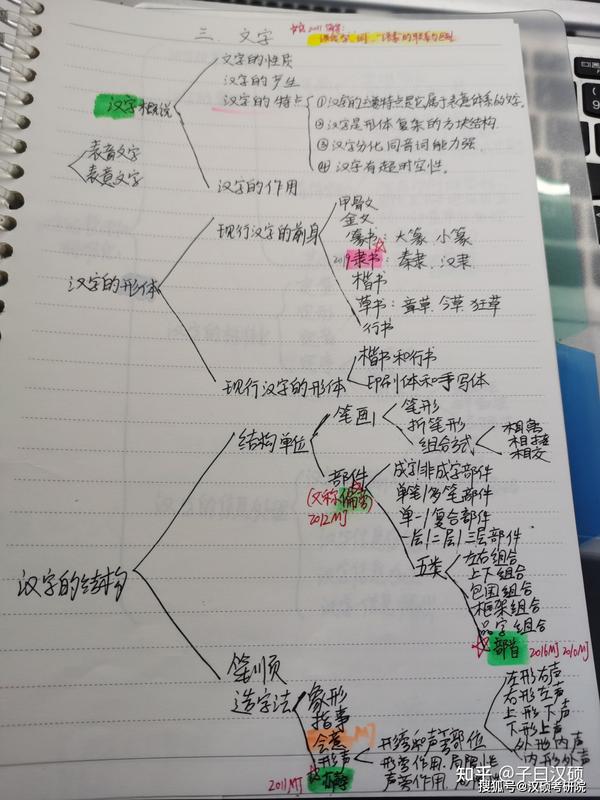 三、文字
2011
汉字概说
文字的性质
汉字的产生
汉字的特点
①汉字的主要特点是它属于表意体系的文字.
②汉字是形体复杂的方块结构.
③汉字分化同音词能力强.
④汉字有超时空性.
汉字的作用
表音文字
表意文字
汉字的形体
现行汉字的前身
甲骨文
金文
篆书:大篆、小篆
2019 隶书:秦隶、汉隶
楷书
草书:章草、今草 狂草
行书
现行汉字的形体
楷书和行书
印刷体和手写体
汉字的结构
结构单位
笔画
笔形
折笔形
组合方式
相离
相接
相交
部件
(又称偏旁)
2012MJ
成字/非成字部件
单笔/多笔部件
单一/复合部件
一层/二层/三层部件
五类
左右组合
上下组合
包围组合
框架组合
品字组合
部首 2016MJ 2010MJ
笔顺
造字法
象形
指事
会意
形声
2011MJ
形旁和声旁部位
左形右声
右形左声
上形下声
下形上声
外形内声
内形外声
形旁作用.局限性
声旁作用.局限性
知乎 @子曰汉硕
搜狐号@汉硕考研院